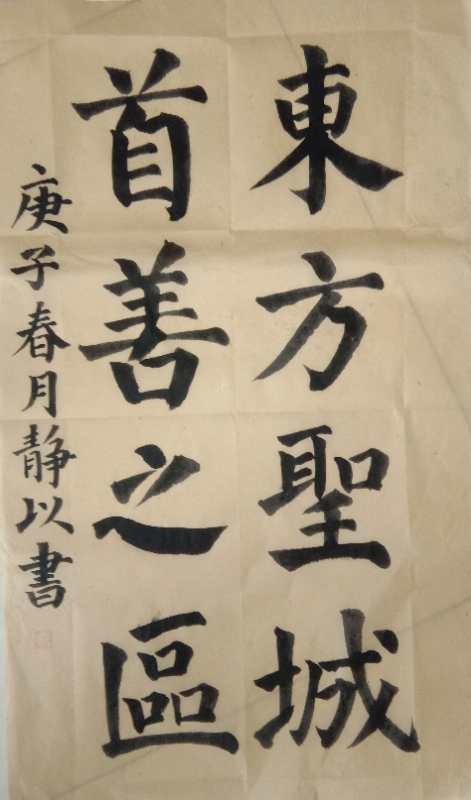 東方聖城
首善之區
庚子春月靜以書